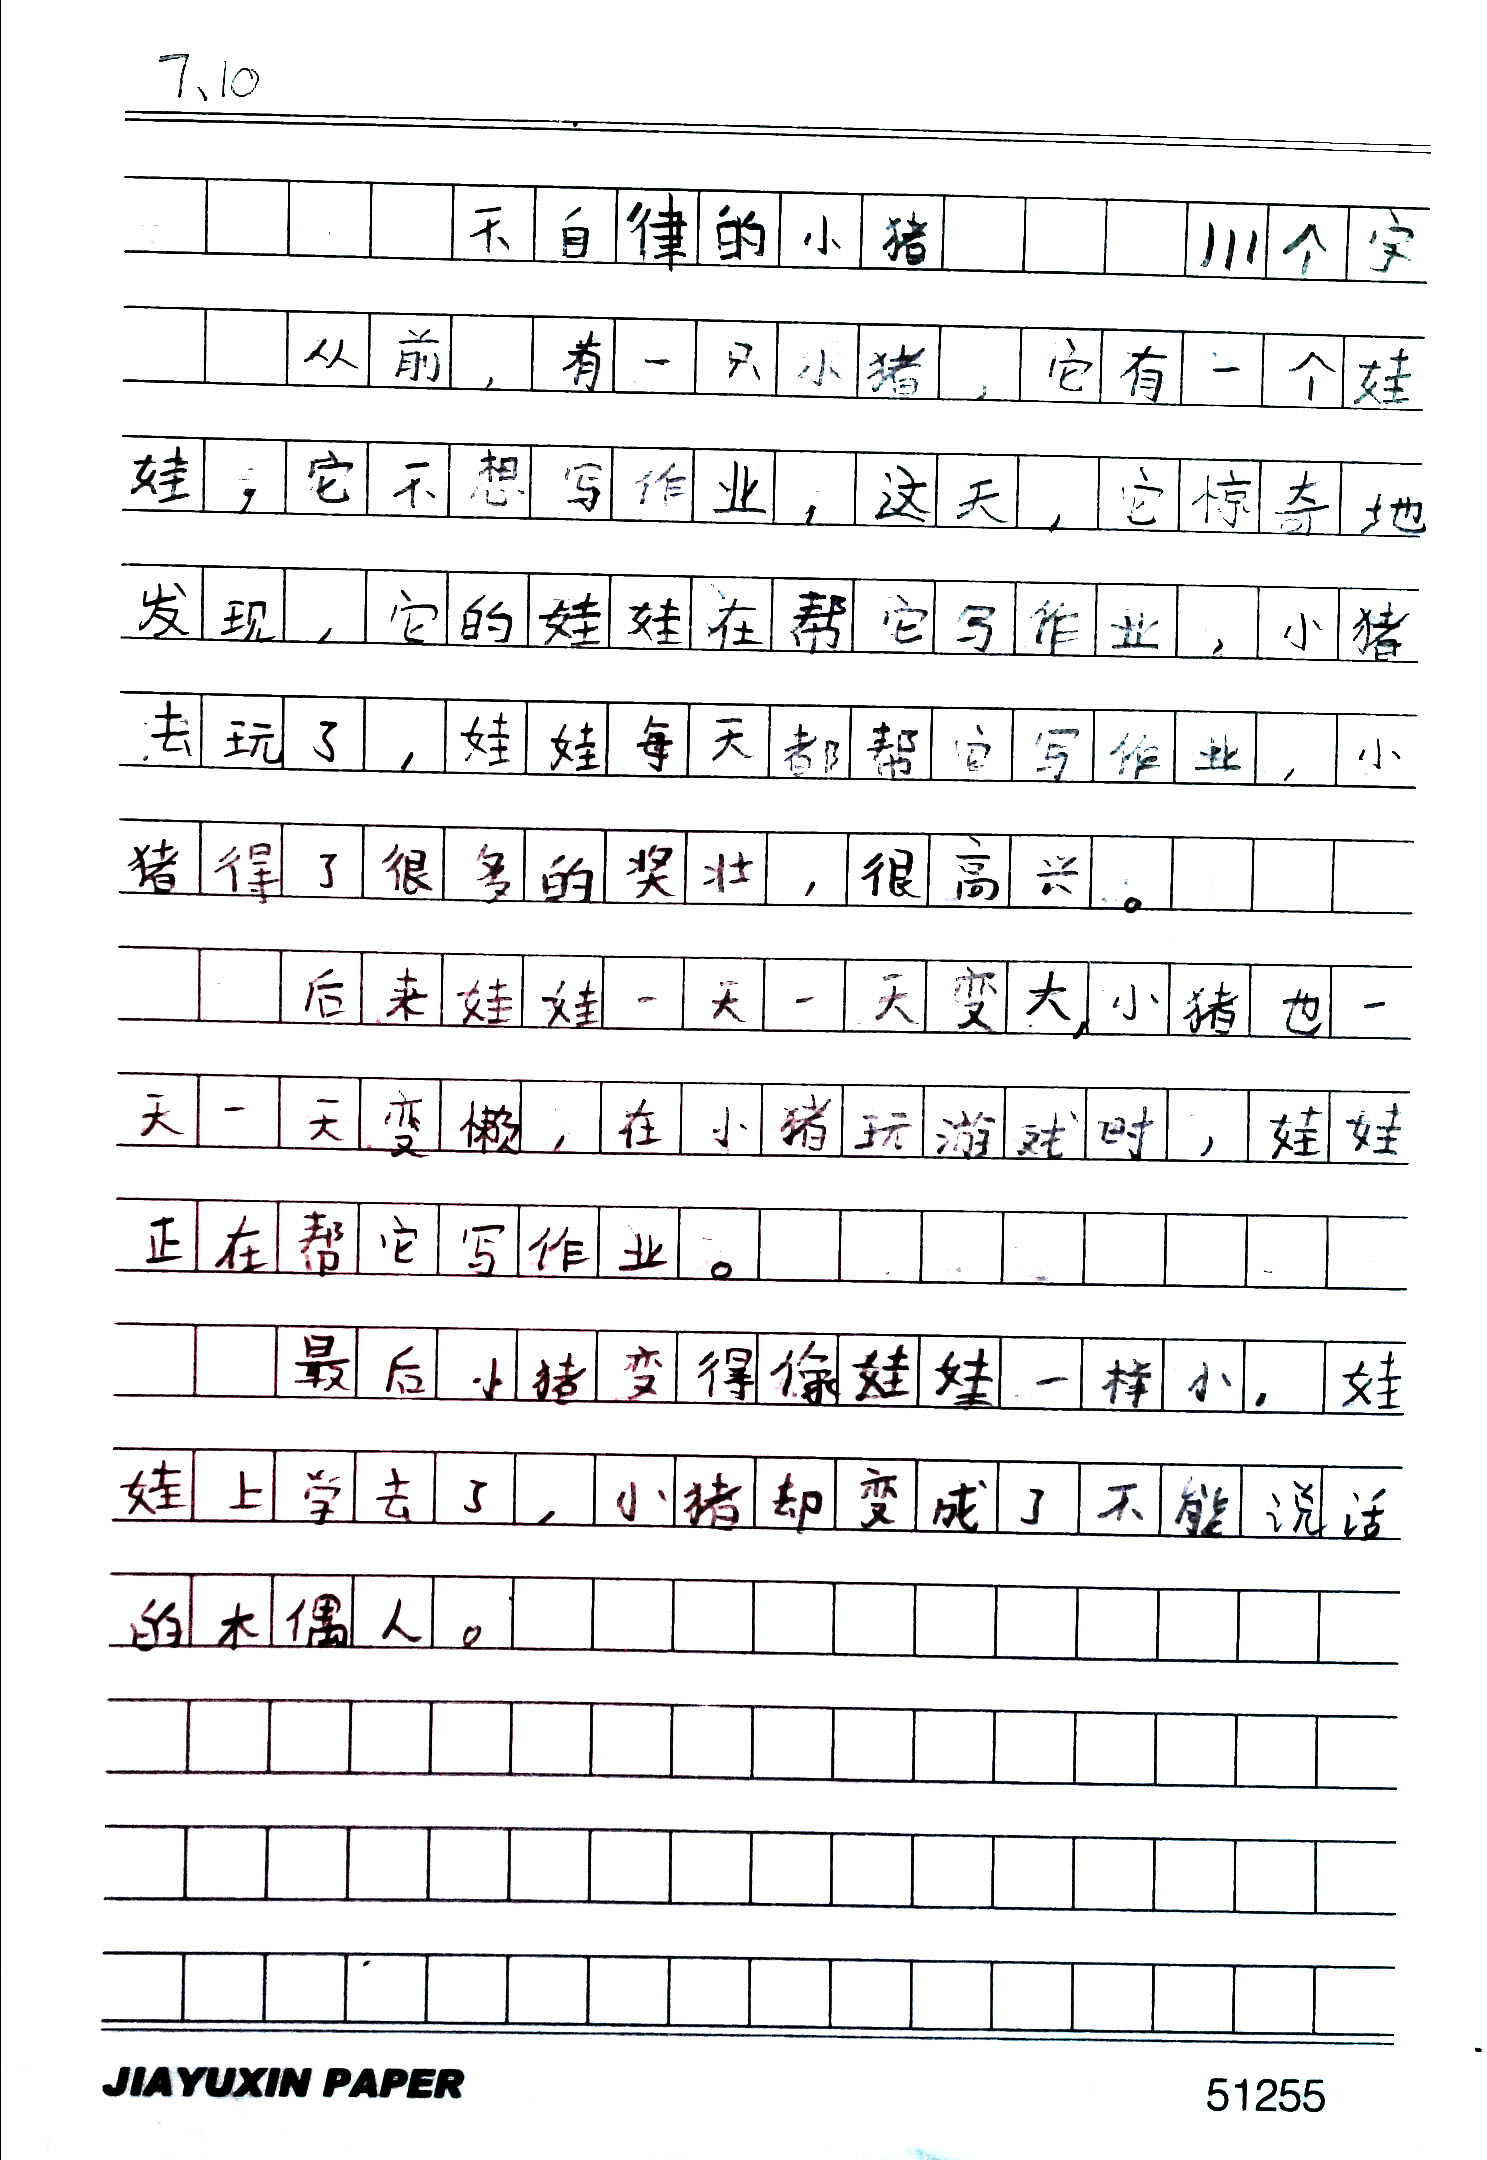 7、10
不自律的小猪 111个字
从前，有一只小猪，它有一个娃
娃，它不想写作业，这天，它惊奇地
发现，它的娃娃在帮它写作业，小猪
去玩了，娃娃每天都帮它写作业，小
猪得了很多的奖壮，很高兴。
后来娃娃一天一天变大，小猪也一
天一天变懒，在小猪玩游戏时，娃娃
正在帮它写作业。
最后小猪变得像娃娃一样小，娃
娃上学去了，小猪却变成了不能说话
的木偶人。
JIAYUXIN PAPER 51255